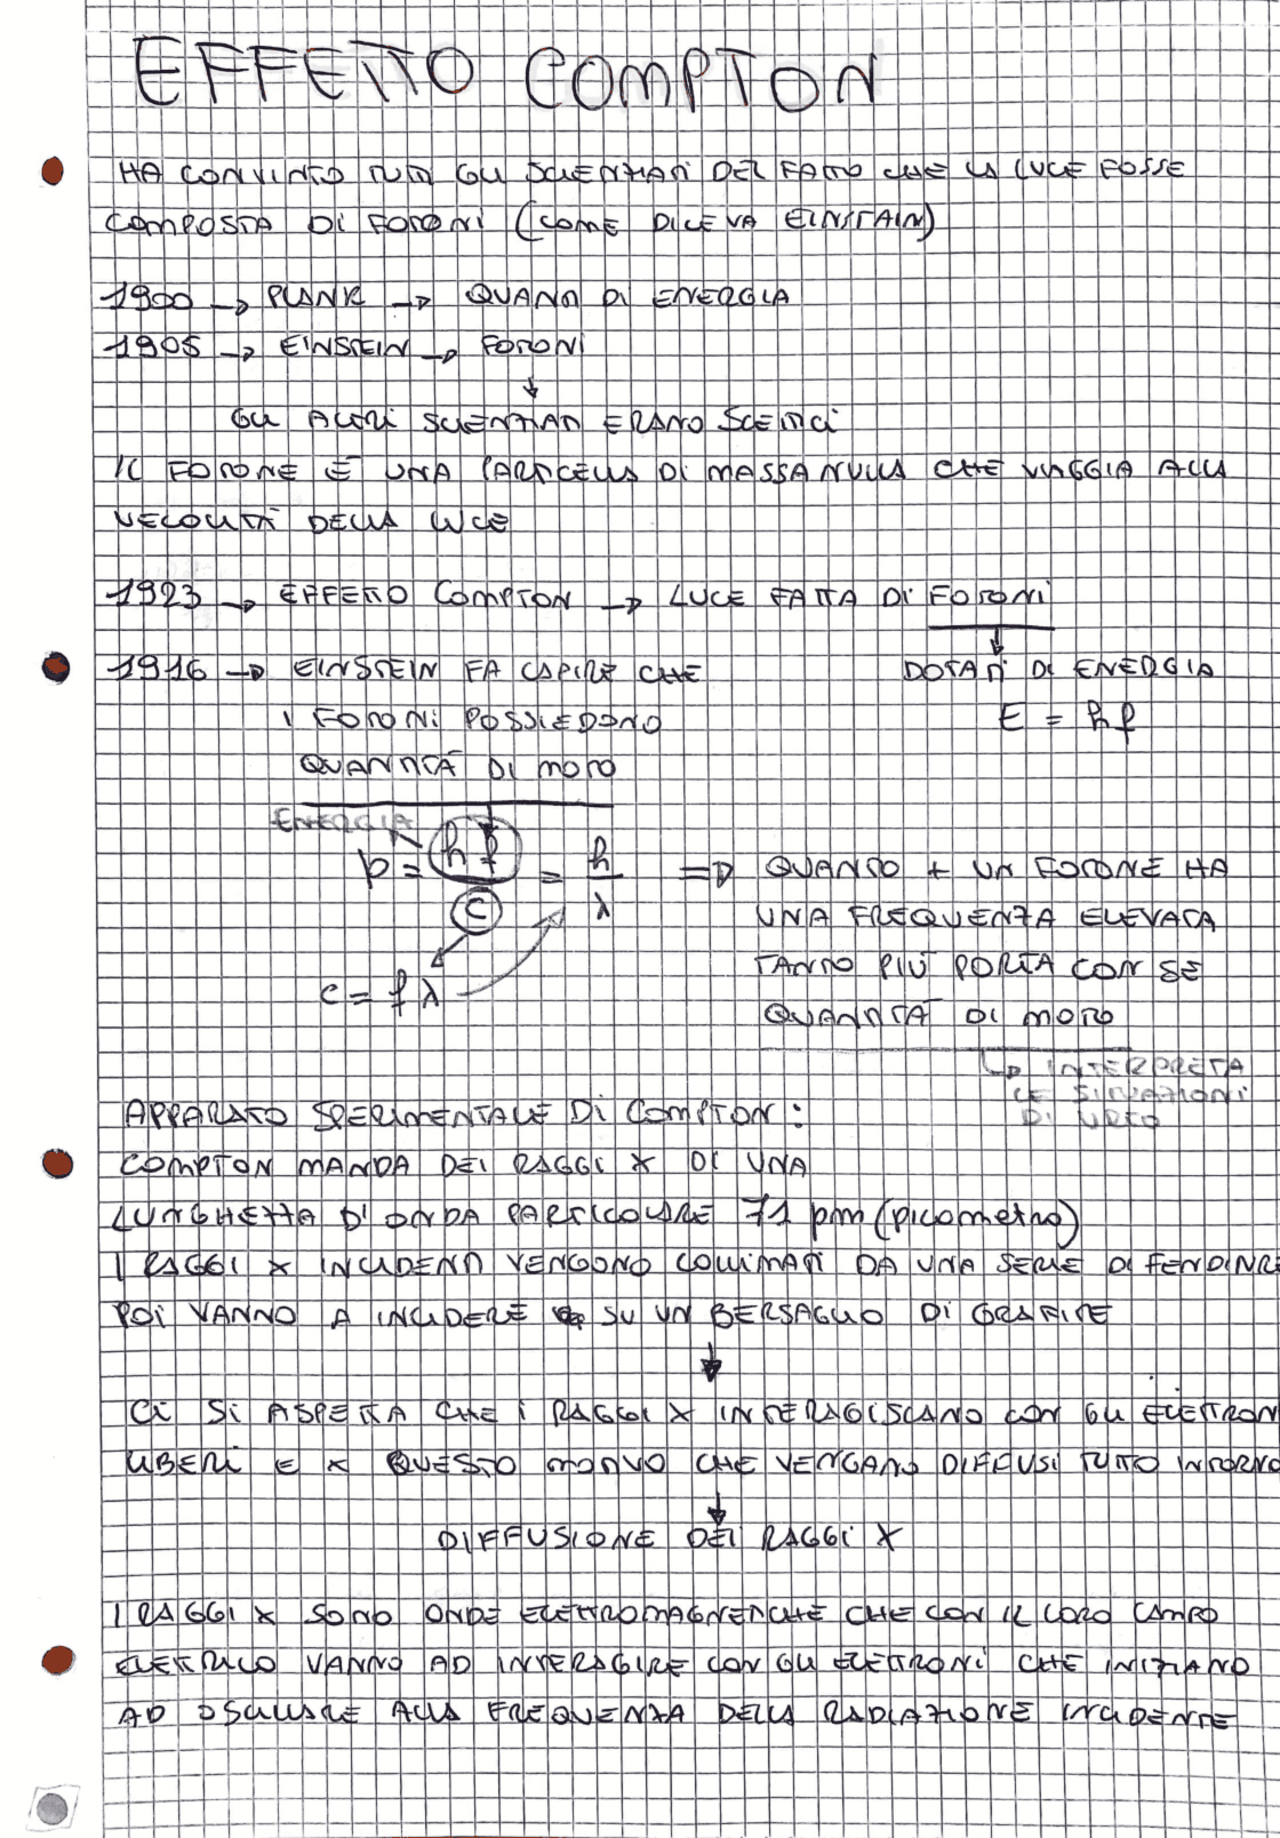 EFFETTO COMPTON
HA CONVINTO TUTTI GLI SCIENZIATI DEL FATTO CHE LA LUCE FOSSE
COMPOSTA DI FOTONI (COME DICEVA EINSTAIN)
1900 → PLANK → QUANTI DI ENERGIA
1905 → EINSTEIN → FOTONI
↓
GLI ALTRI SCIENZIATI ERANO SCETTICI
IL FOTONE È UNA PARTICELLA DI MASSA NULLA CHE VIAGGIA ALLA
VELOCITÀ DELLA LUCE
1923 → EFFETTO COMPTON → LUCE FATTA DI FOTONI
1916 → EINSTEIN FA CAPIRE CHE
I FOTONI POSSIEDONO
QUANTITÀ DI MOTO
DOTATI DI ENERGIA
E = hf
ENERGIA
p = hf/c = h/λ
c = fλ
⇒ QUANTO + UN FOTONE HA
UNA FREQUENZA ELEVATA
TANTO PIÙ PORTA CON SE
QUANTITÀ DI MOTO
↳ INTERPRETA
LE SITUAZIONI
DI URTO
APPARATO SPERIMENTALE DI COMPTON:
COMPTON MANDA DEI RAGGI X DI UNA
LUNGHEZZA D'ONDA PARTICOLARE 71 pm (picometro)
I RAGGI X INCIDENTI VENGONO COLLIMATI DA UNA SERIE DI FENDITURE
POI VANNO A INCIDERE SU UN BERSAGLIO DI GRAFITE
↓
CI SI ASPETTA CHE I RAGGI X INTERAGISCANO CON GLI ELETTRONI
LIBERI E X QUESTO MOTIVO CHE VENGANO DIFFUSI TUTTO INTORNO
↓
DIFFUSIONE DEI RAGGI X
I RAGGI X SONO ONDE ELETTROMAGNETICHE CHE CON IL LORO CAMPO
ELETTRICO VANNO AD INTERAGIRE CON GLI ELETTRONI CHE INIZIANO
AD OSCILLARE ALLA FREQUENZA DELLA RADIAZIONE INCIDENTE